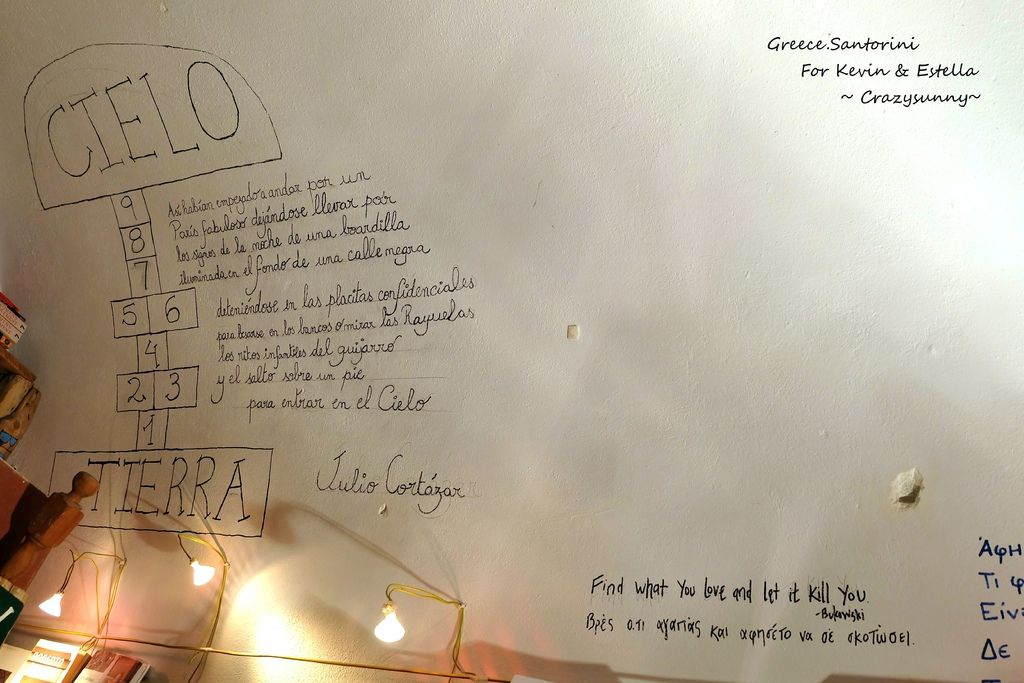 Greece.Santorini
For Kevin & Estella
~ Crazysunny~
CIELO
9
8
7
5 6
4
2 3
1
TIERRA
Así habían empezado a andar por un
París fabuloso dejándose llevar por
los signos de la noche de una boardilla
iluminada en el fondo de una calle negra
deteniéndose en las placitas confidenciales
para besarse en los bancos o mirar las Rayuelas
los ritos infantiles del guijarro
y el salto sobre un pie
para entrar en el Cielo
Julio Cortázar
Find what you love and let it kill you.
-Bukowski
Βρες ο.τι αγαπάς και αφησέτο να σε σκοτώσει.
ΆφΗ
Τι φ
Είνι
Δε
ROBERTO